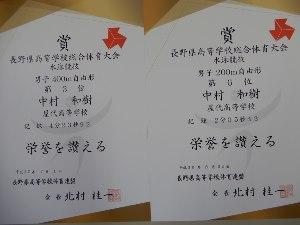 賞
長野県高等学校総合体育大会
水泳競技
男子400m自由形
第3位
中村 和樹
屋代高等学校
栄誉を讃える
長野県高等学校体育連盟
会長 北村 桂一
賞
長野県高等学校総合体育大会
水泳競技
男子200m自由形
第6位
中村 和樹
屋代高等学校
栄誉を讃える
長野県高等学校体育連盟
会長 北村 桂一